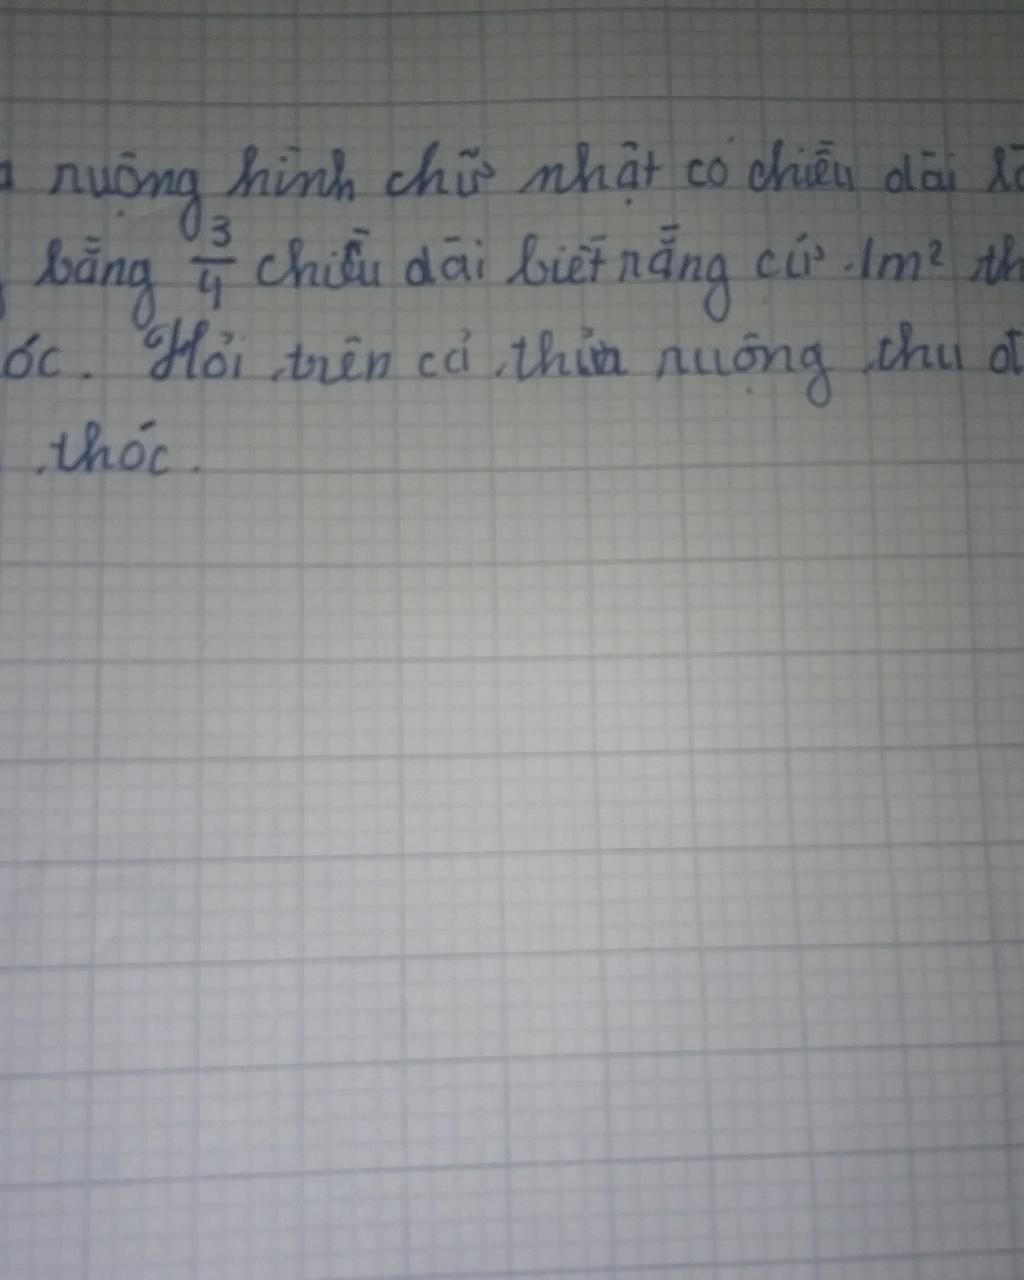 ruộng hình chữ nhật có chiều dài
bằng 3/4 chiều dài biết rằng cứ 1m² th
óc. Hỏi trên cả thửa ruộng thu đ
thóc.